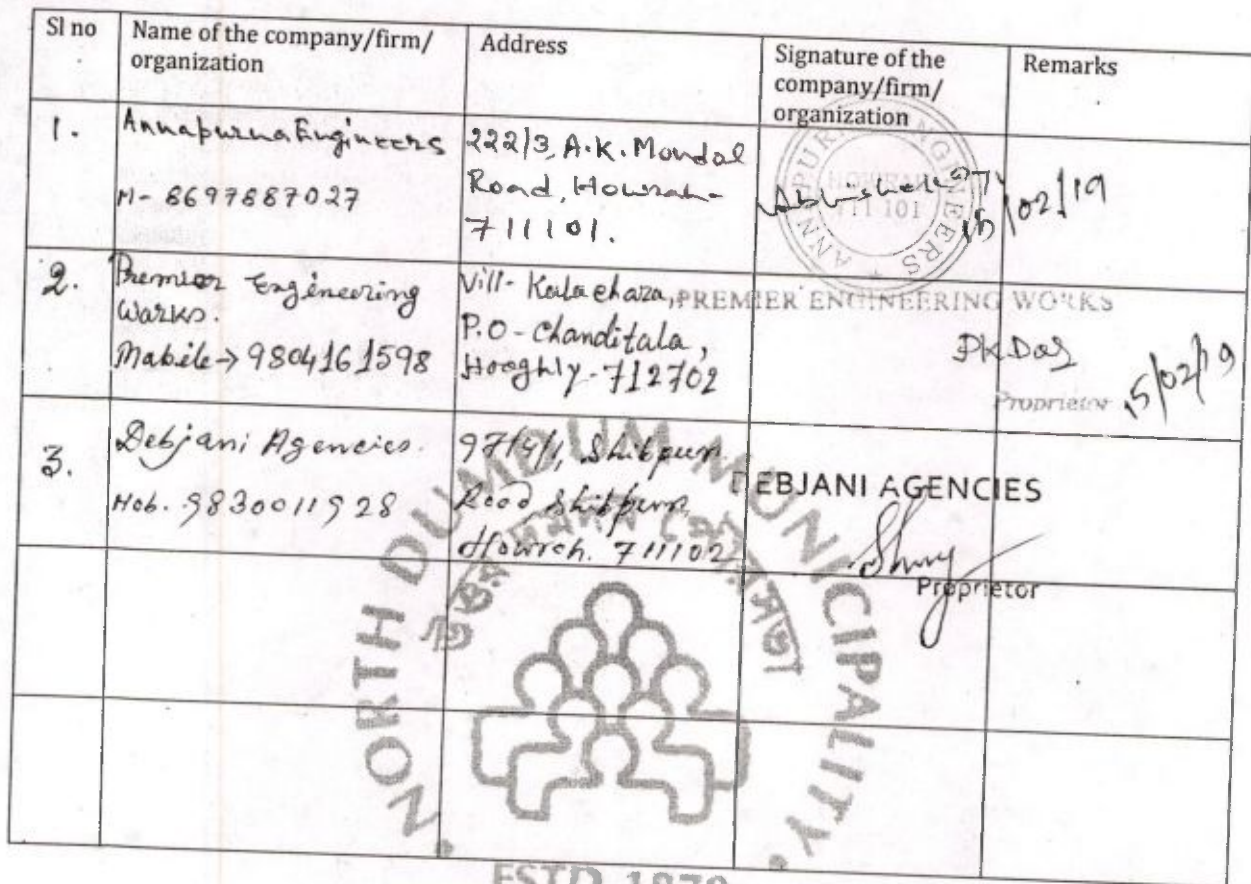 Sl no
Name of the company/firm/
organization
Address
Signature of the
company/firm/
organization
Remarks
1.
Annapurna Engineers
M- 8697887027
222/3, A.K. Mondal
Road, Howrah-
711101.
ANNAPURNA ENGINEERS
HOWRAH
711 101
Abhishek
15/02/19
2.
Premier Engineering
Works.
Mabile → 9804161598
Vill- Kalachara,
P.O - Chanditala,
Hooghly - 712702
PREMIER ENGINEERING WORKS
PK Das
Proprietor
15/02/19
3.
Debjani Agencies.
Mob. 9830011928
97/4/1, Shibpur
Road, Shibpur
Howrah. 711102
DEBJANI AGENCIES
Proprietor
NORTH DUMDUM MUNICIPALITY
উত্তর দমদম পৌরসভা
ESTD 1870